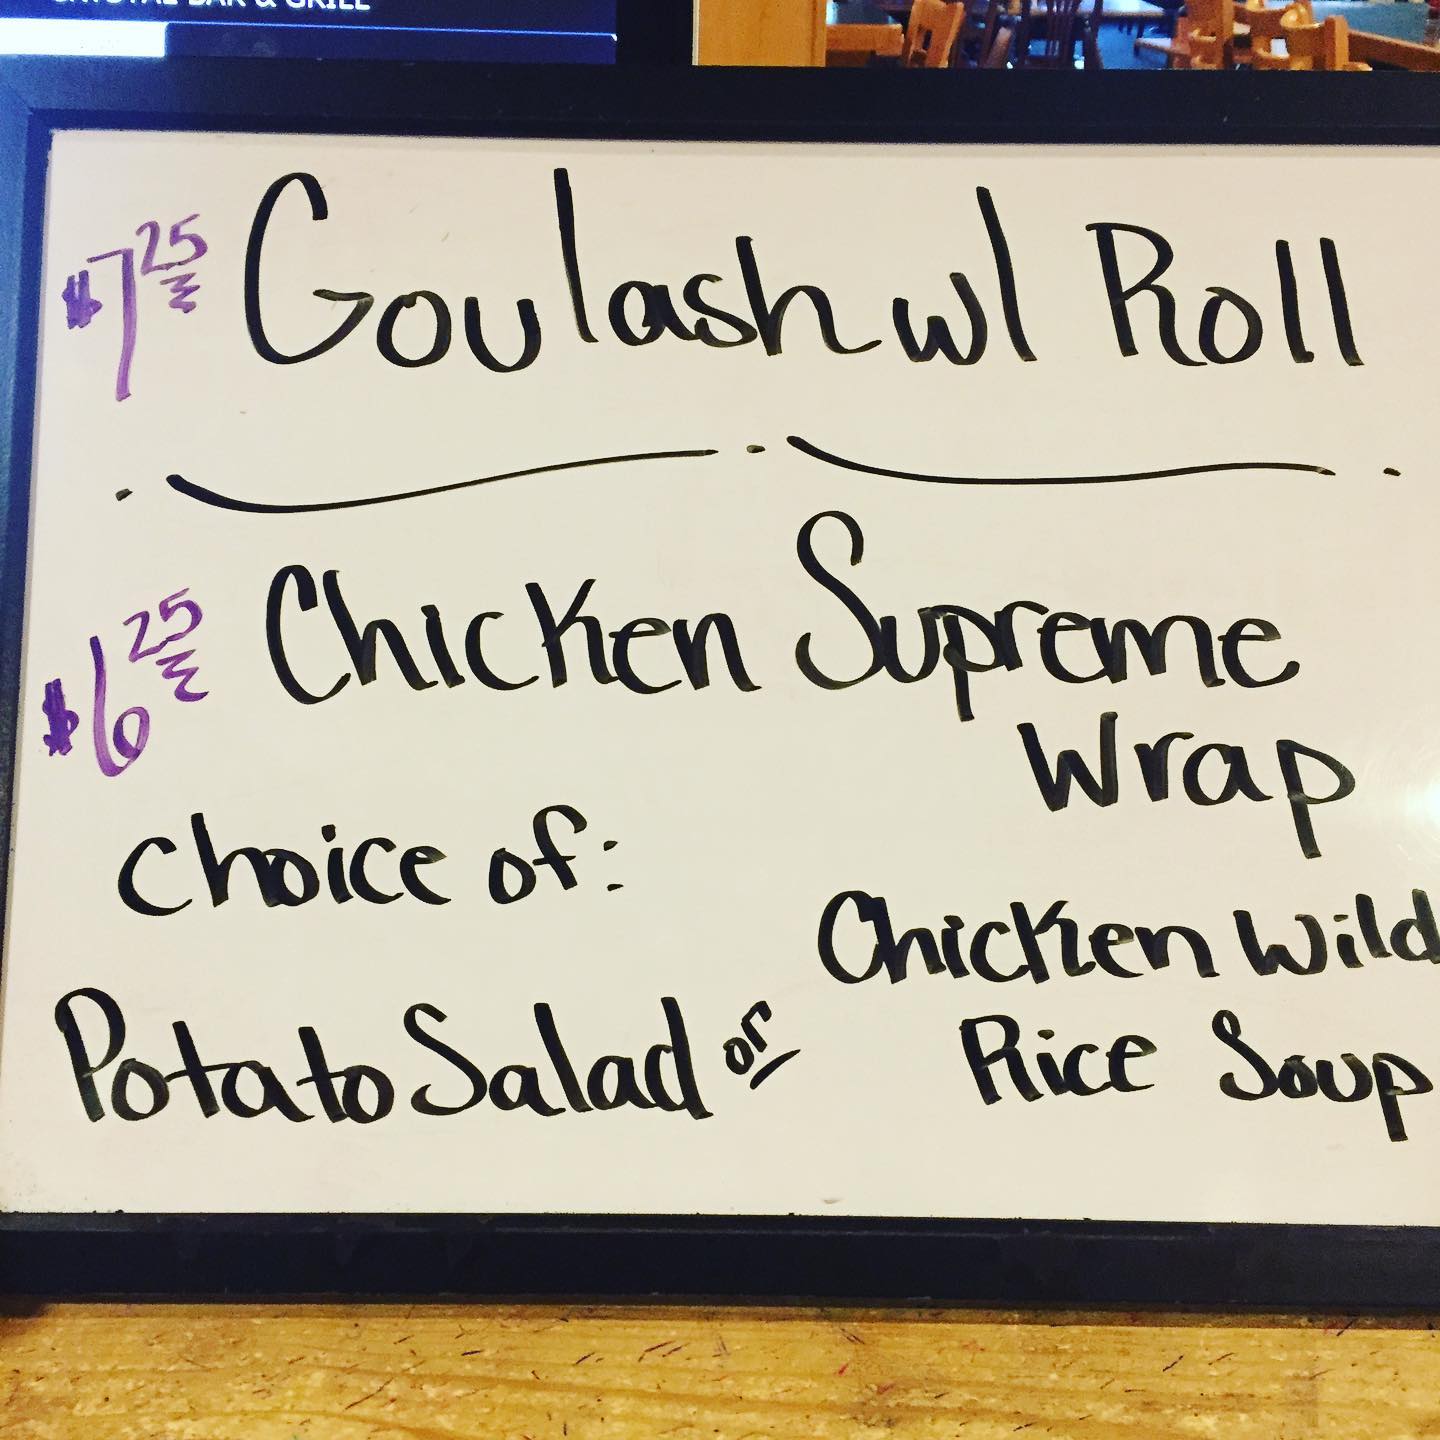 BAR & GRILL
$7 25 Goulash w/ Roll
$6 25 Chicken Supreme
Wrap
Choice of:
Chicken Wild
Potato Salad or Rice Soup